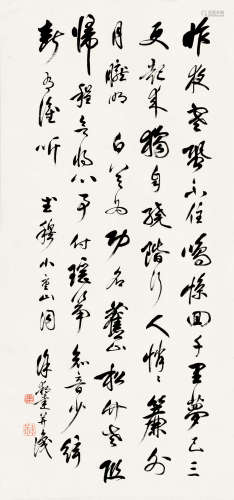 昨夜寒蛩不住鳴驚回千里夢已三
更起來獨自繞階行人悄悄簾外
月朧明白首為功名舊山松竹老阻
歸程欲將心事付瑤箏知音少絃
斷有誰听 武穆小重山詞
徐